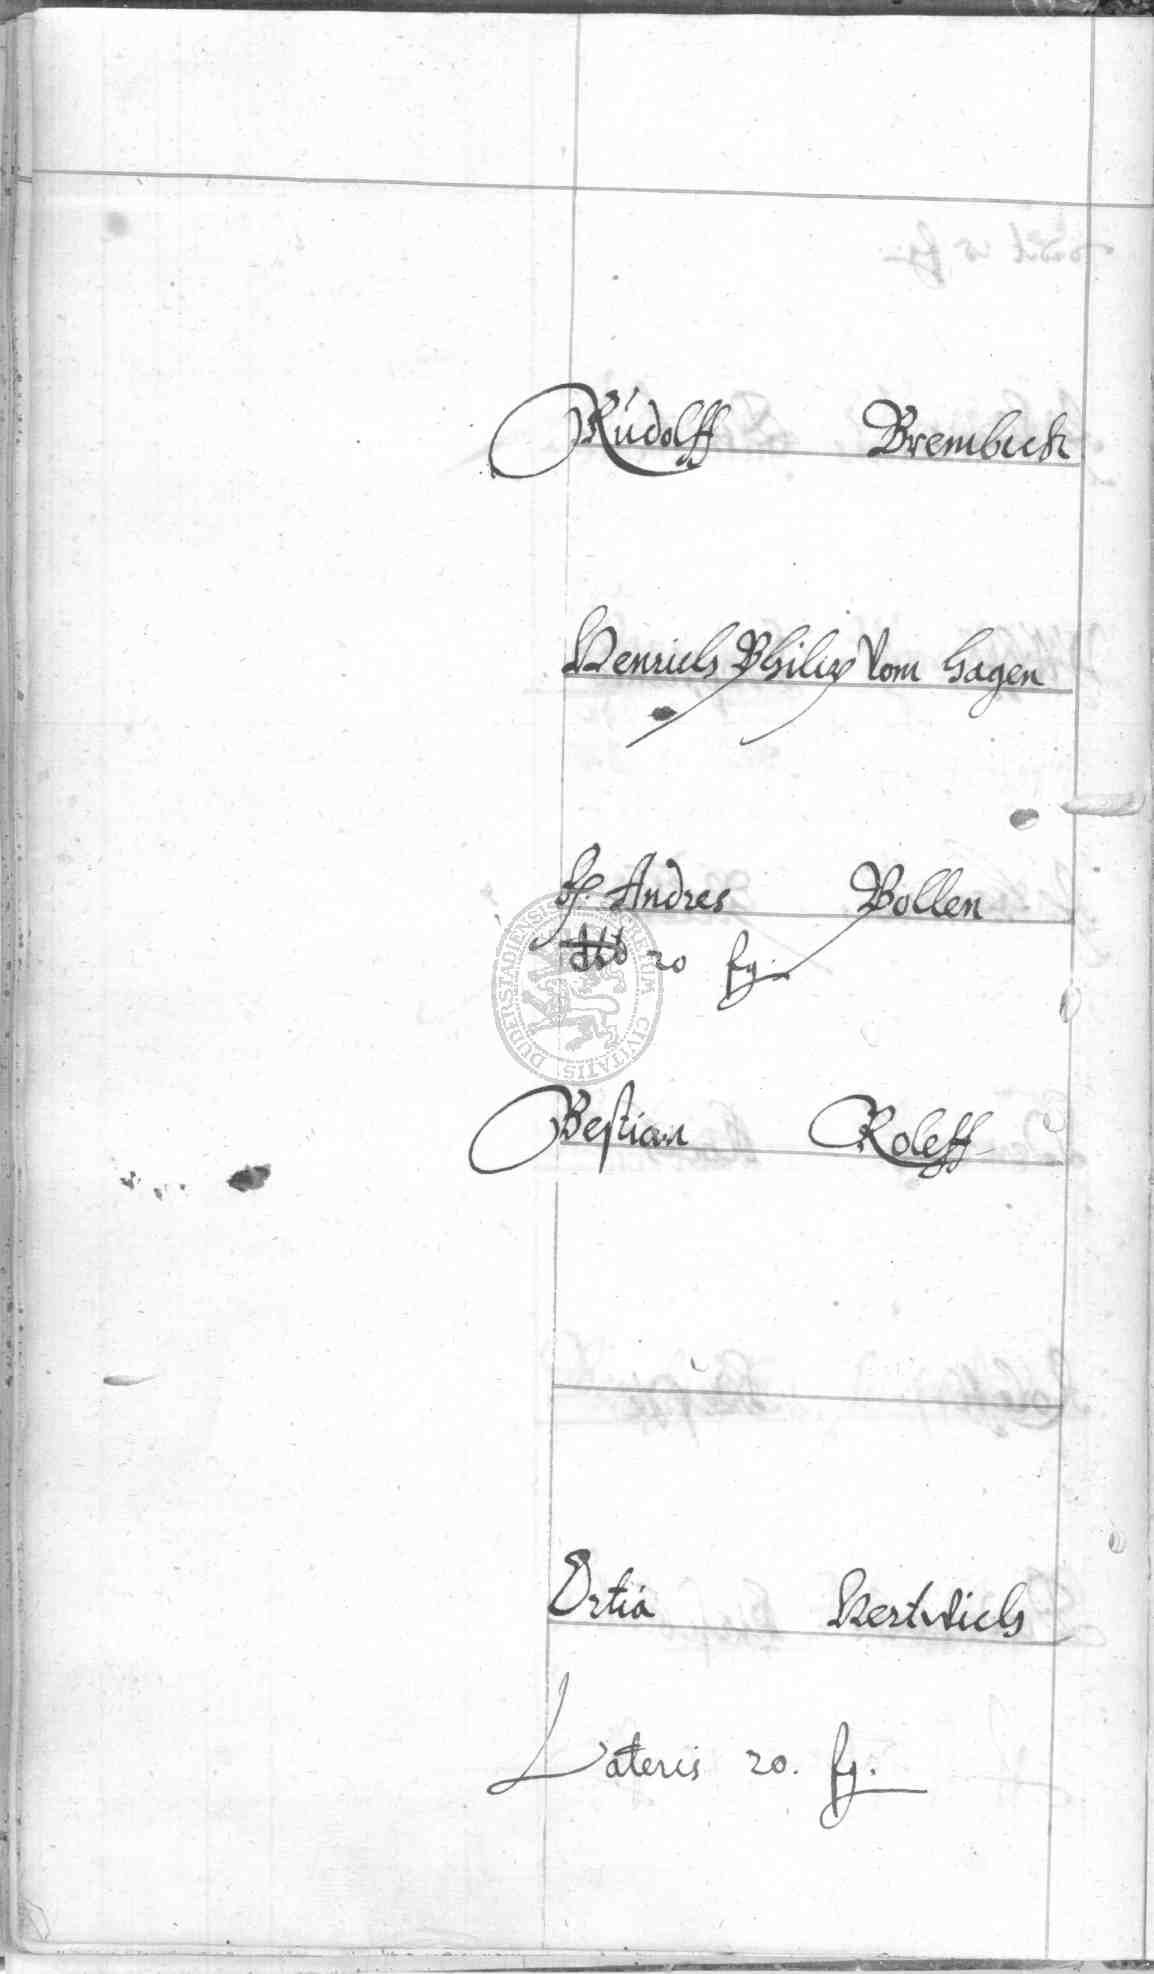 Rudolff Brembeck
Henrich Philip Vom Hagen
H. Andres Bollen
20 fg.
Bestian Roleff
Ortia Hertwich
Lateris 20. fg.
SECRETUM CIVITATIS DUDERSTADIENSIS